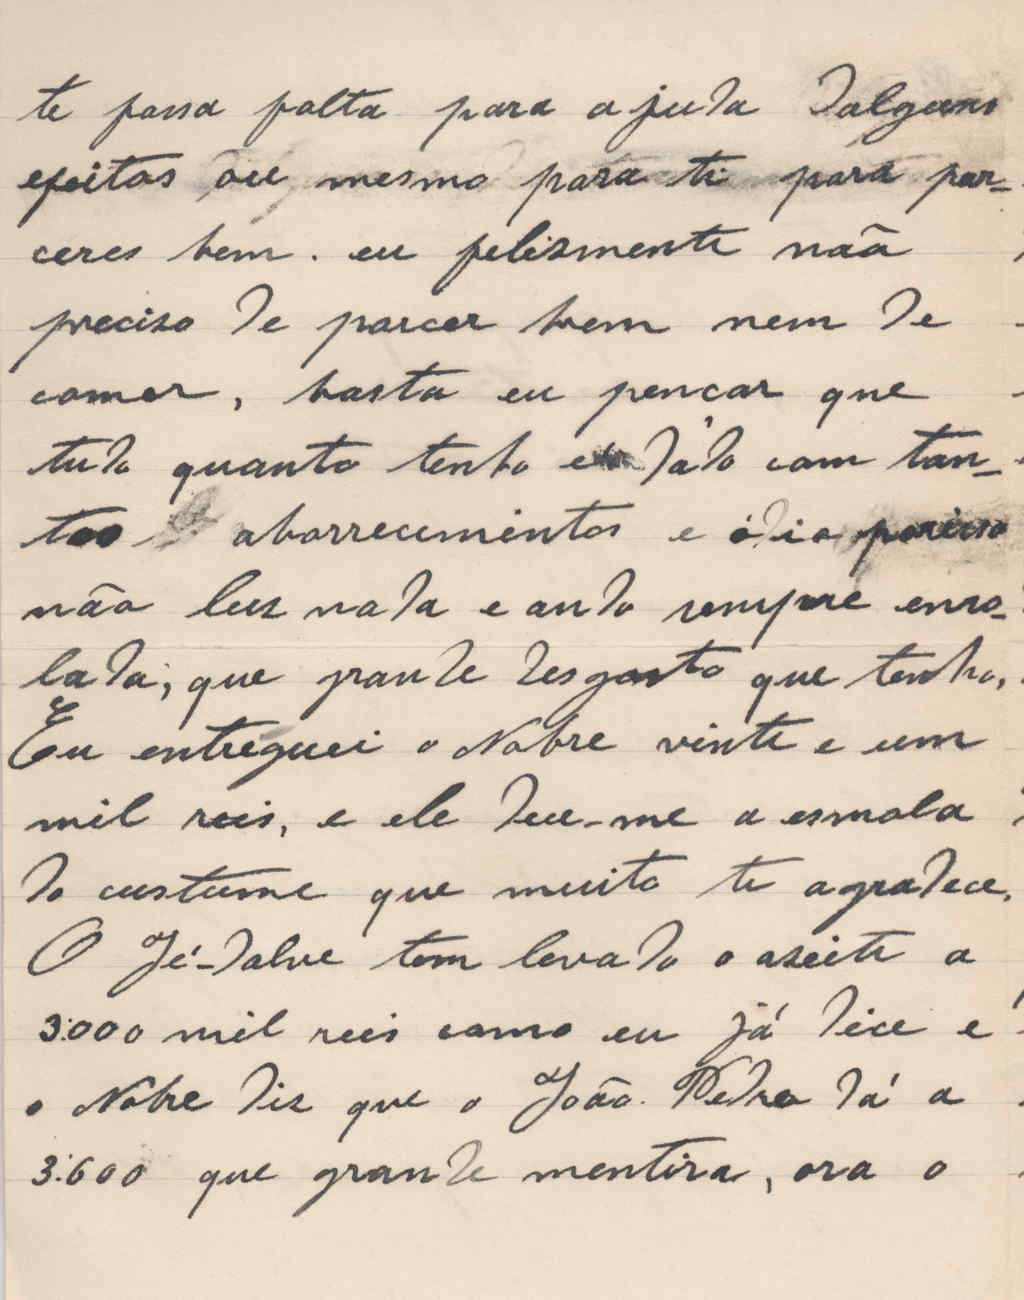 te fassa falta para ajuda dalguns
efeitos ou mesmo para ti para par-
ceres bem. eu felismente não
preciso de parcer bem nem de
comer, basta eu pençar que
tudo quanto tenho é dádo com tan-
tos aborrecimentos e ódio porisso
não luz nada e ando sempre enro-
lada, que grande desgosto que tenho,
Eu entreguei o Nobre vinte e um
mil reis, e ele deu-me a esmola
do custume que muito te agradece.
O Jé-dalve tem levado o azeite a
3:000 mil reis como eu já dice e
o Nobre diz que o João Pedro dá a
3:600 que grande mentira, ora o